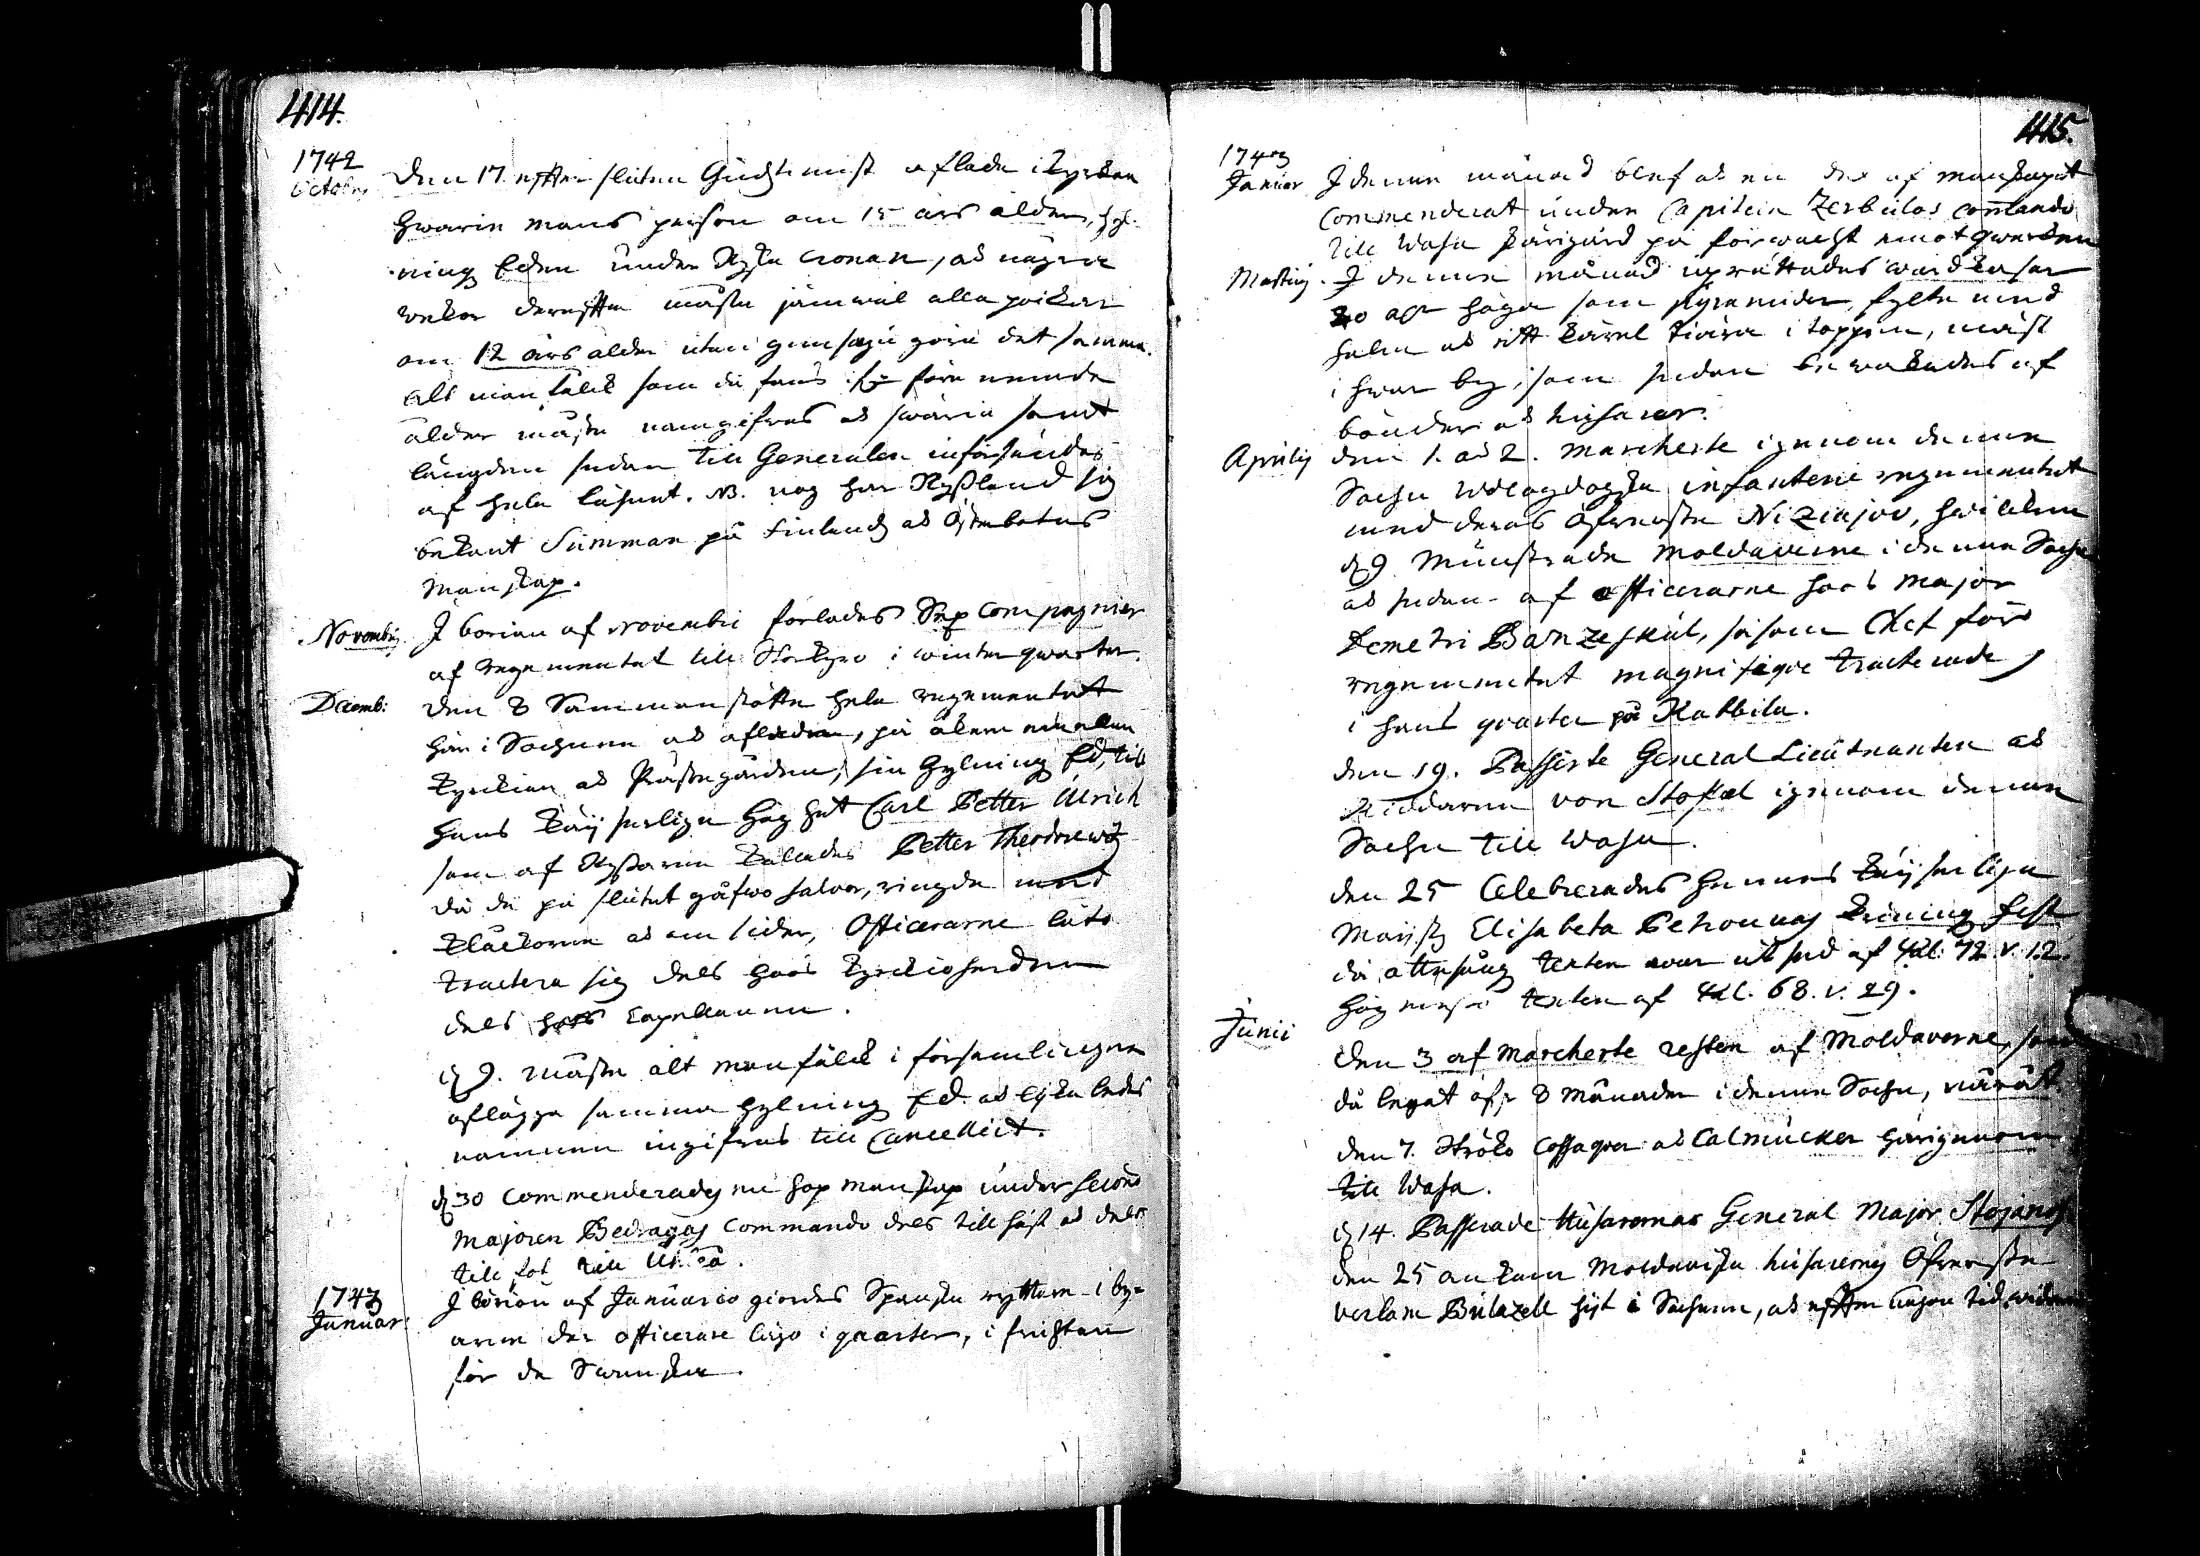 414.
1742
Octobr
Den 17. effter sluten Gudstienst aflade i Kyrckan
hwarie mans person om 15 års ålder, hyl-
ning Eden under Ryska Cronan, ock någre
wekor dereffter måste jämwäl alla poikar
om 12 års ålder uthan giensäijn giöra det samma.
Alt manfålck som då fans före nemde
ålder måste namngifwas ock swäria samt
längden sedan till Generalen infordrades
af hela Landet. NB. nog har Ryssland sig
bekant Summan på Finlands ock Österbotns
manskap.
Novembris
I början af Novembri förlades Compagnier
af regementet till Storkyro i winterqwarter.
Decemb:
Den 8 Sammanstötte hela regementet
här i Sochnen ock aflade, på åkern emellan
Kyrckian ock Prästegården, sin hylning Ed, till
hans Käyserliga höghet Carl Petter Ulrich
som af Ryssarne kallades Petter Theodrewitz
då de på slutet gåfwo salvor, ringde med
klåckorne ock om sider, Officerarne läto
tractera sig dels hoos Kyrckioherden
dels hoos Capellanen.
d. 9. måste alt manfålck i församlingen
aflägga samma hylning Ed. ock lijka ledes
namnen ingifwas till Cancelliet.
d. 30 Commenderades en hop manskap under Second
Majoren Bedragas Commando dels till häst ock dels
till fot till Umeå.
1743
Januar:
I början af Januario giordes Spanska ryttare i by-
arne der officerare lågo i quarter, i fruchtan
för de Swenska.
415.
1743
Januar
I denne månad blef ock en del af manskapet
Commenderat under Capitein Zerbulas Commando
till Wasa skärigård på förwacht emot Qwarken
Martij.
I denne månad uprättades wårdkasar
20 alr höga som Pyramider, fylte med
halm ock ett kärel tiära i toppen, mäst
i hwar by, som sedan bewakades af
bönder ock husarer.
Aprilis
Den 1. ock 2. Marcherte igenom denne
Sochn Wologdogska infanterie regementet
med deras Öfwerste Niziajov, hwilken
d. 9 Mönstrade Moldauerne i denne Sochn
ock sedan af officerarne hoos Major
Demetri Banzeskul, såsom Chef för
regementet magnifique tracterade
i hans qvarter på Kabbila.
Den 19. Passerte General Lieutnanten ock
Riddaren von Stoffel igenom denne
Sochn till Wasa.
Den 25 Celebrerades hennes Käyserliga
Mayst: Elisabeta Petrounas Kröning fest
då ottesång texten war utsed af Psal. 72. v. 12.
högmesso texten af Psal. 68. v. 29.
Junii
Den 3 af Marcherte resten af Moldaverne, som
då legat öfr 8 Månader i denne Sochn,
Den 7. Ströko Cossaquer ock Calmucker härigenom
till Wasa.
d. 14. Passerade Husarernas General Major Stojanof
Den 25 ankom Moldauiska husarernes Öfwerste
Verlam Bulazell hijt i Sochnen, ock effter någon tid